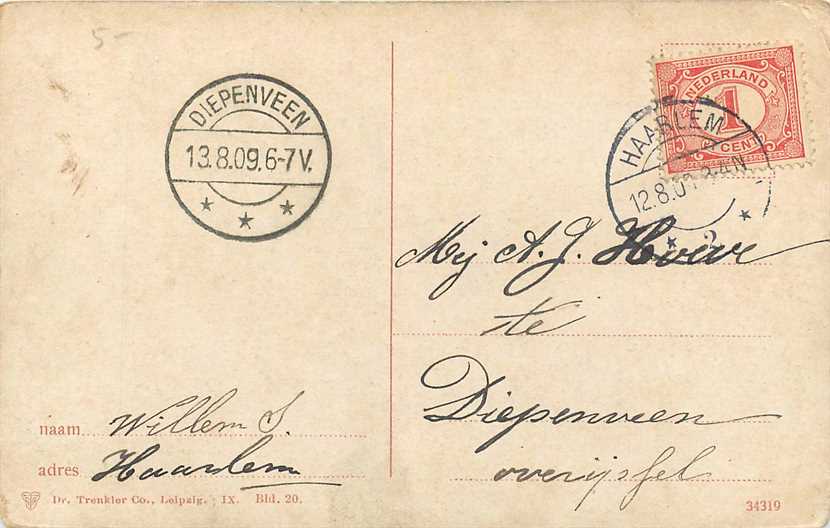 5-
DIEPENVEEN
13.8.09.6-7V.
NEDERLAND
1
CENT
HAARLEM
12.8.09 3-4N
2
Mej A. J. Hoeve
te
Diepenveen
overijssel
naam Willem S.
adres Haarlem
Dr. Trenkler Co., Leipzig. IX. Bld. 20.
34319